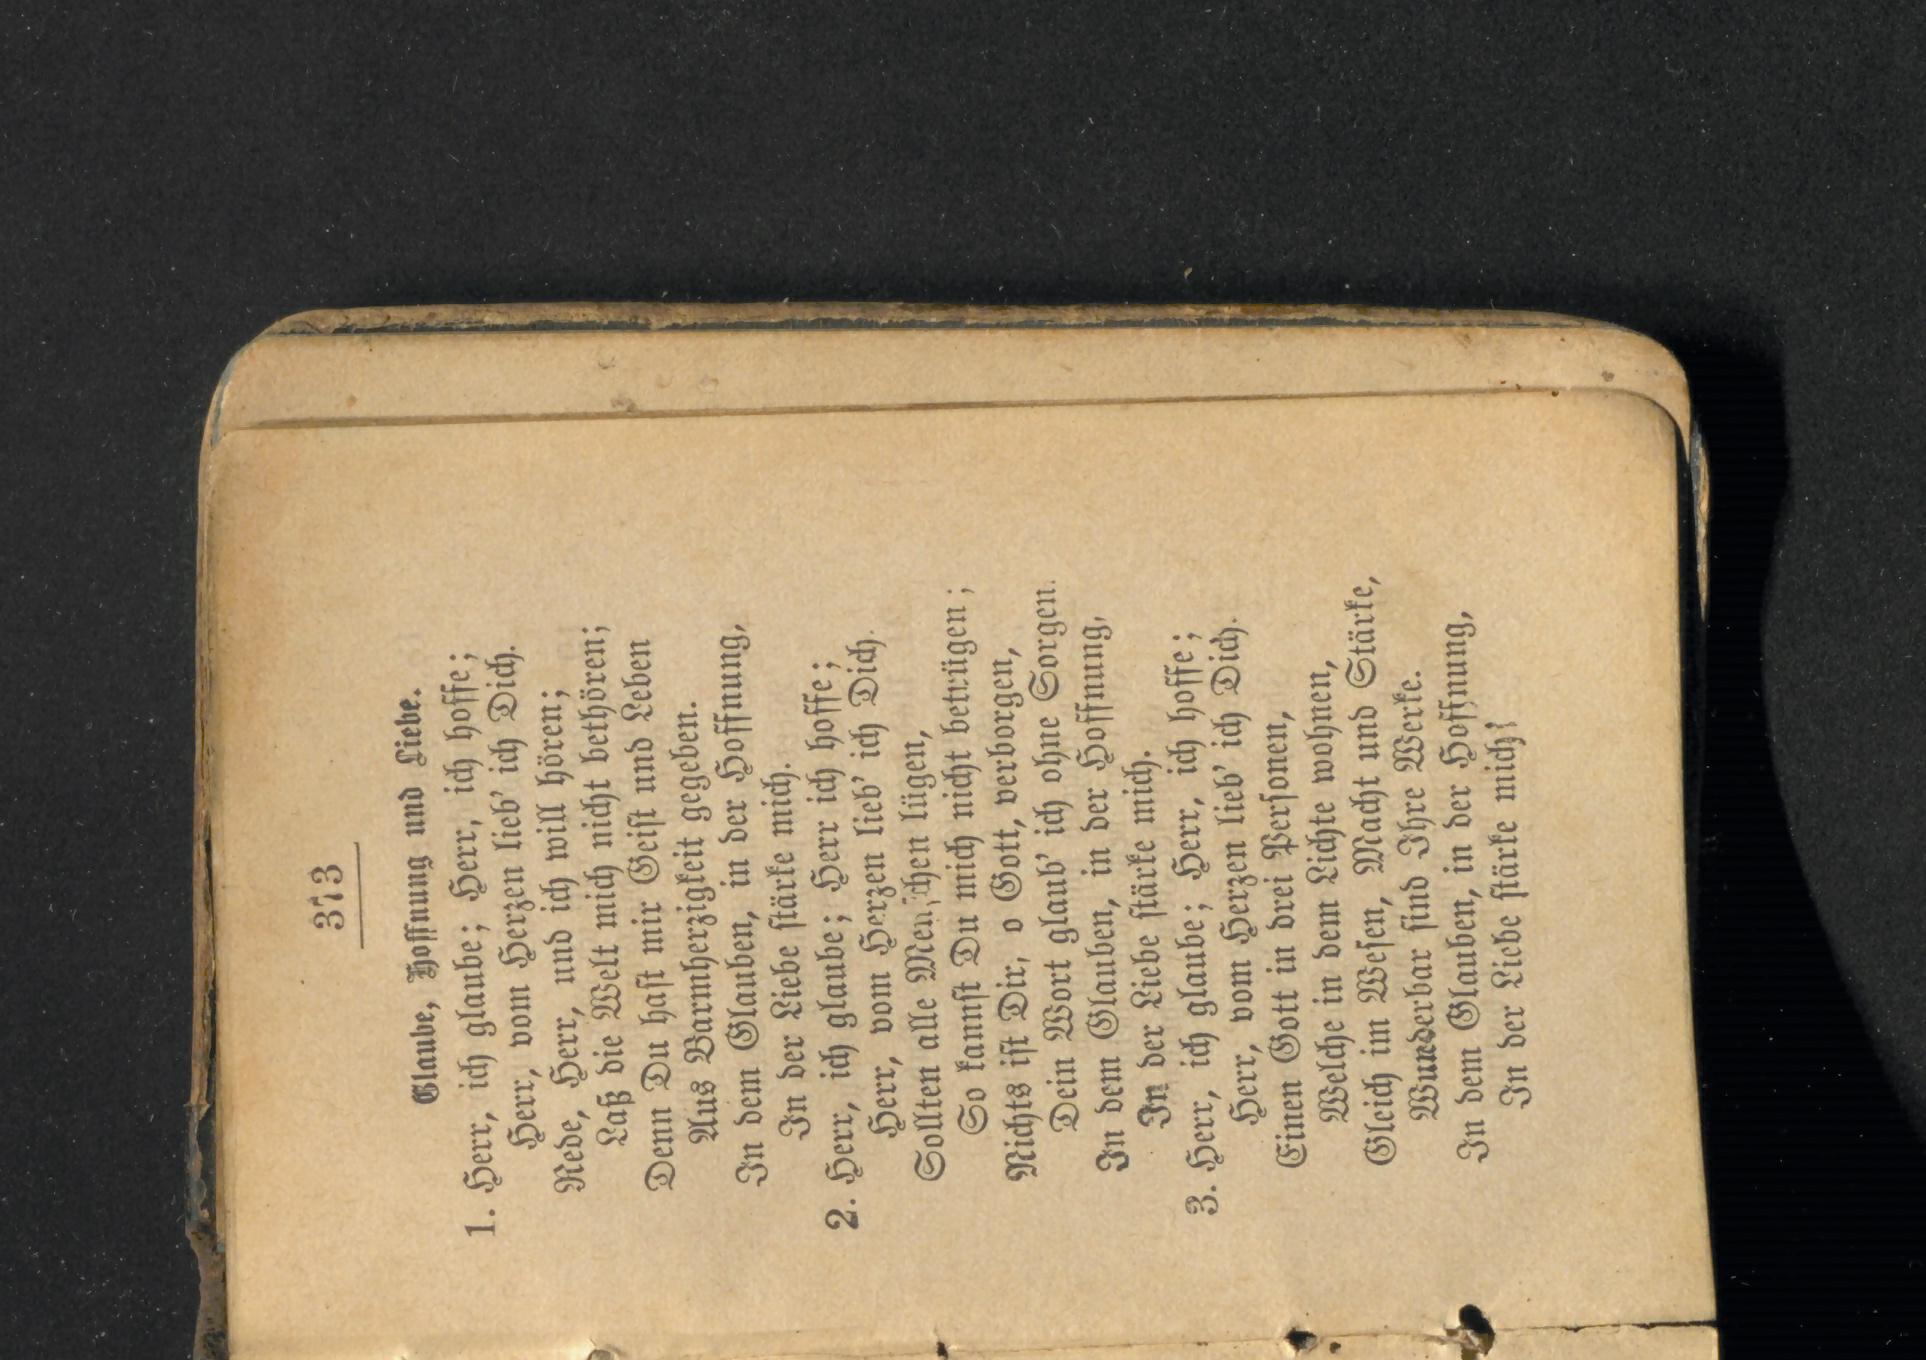 373
Glaube, Hoffnung und Liebe.
1. Herr, ich glaube; Herr, ich hoffe;
Herr, vom Herzen lieb' ich Dich.
Rede, Herr, und ich will hören;
Laß die Welt mich nicht bethören;
Denn Du hast mir Geist und Leben
Aus Barmherzigkeit gegeben.
In dem Glauben, in der Hoffnung,
In der Liebe stärke mich.
2. Herr, ich glaube; Herr ich hoffe;
Herr, vom Herzen lieb' ich Dich.
Sollten alle Menschen lügen,
So kannst Du mich nicht betrügen;
Nichts ist Dir, o Gott, verborgen,
Dein Wort glaub' ich ohne Sorgen.
In dem Glauben, in der Hoffnung,
In der Liebe stärke mich.
3. Herr, ich glaube; Herr, ich hoffe;
Herr, vom Herzen lieb' ich Dich.
Einen Gott in drei Personen,
Welche in dem Lichte wohnen,
Gleich im Wesen, Macht und Stärke,
Wunderbar sind Ihre Werke.
In dem Glauben, in der Hoffnung,
In der Liebe stärke mich!